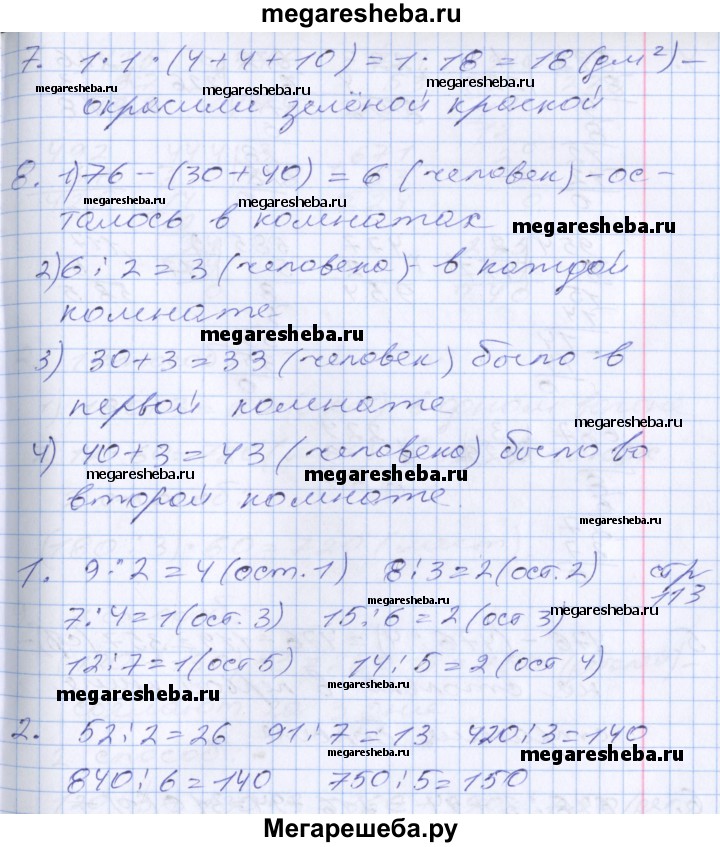 megaresheba.ru
7. 1·1·(4+4+10)=1·18=18(дм²)–
megaresheba.ru megaresheba.ru megaresheba.ru
окрасили зелёной краской
8. 1)76–(30+40)=6 (человек)–ос-
megaresheba.ru megaresheba.ru
талось в комнатах
megaresheba.ru
2)6:2=3(человека)-в каждой
комнате
megaresheba.ru
3) 30+3=33(человек) было в
первой комнате
megaresheba.ru
4) 40+3=43(человека) было во
megaresheba.ru megaresheba.ru
второй комнате.
1. 9:2=4(ост.1) 8:3=2(ост.2) стр
113
megaresheba.ru
7:4=1(ост.3) 15:6=2(ост 3)
megaresheba.ru
12:7=1(ост5) 14:5=2(ост 4)
megaresheba.ru megaresheba.ru
2. 52:2=26 91:7=13 420:3=140
megaresheba.ru megaresheba.ru
840:6=140 750:5=150
Мегарешеба.ру